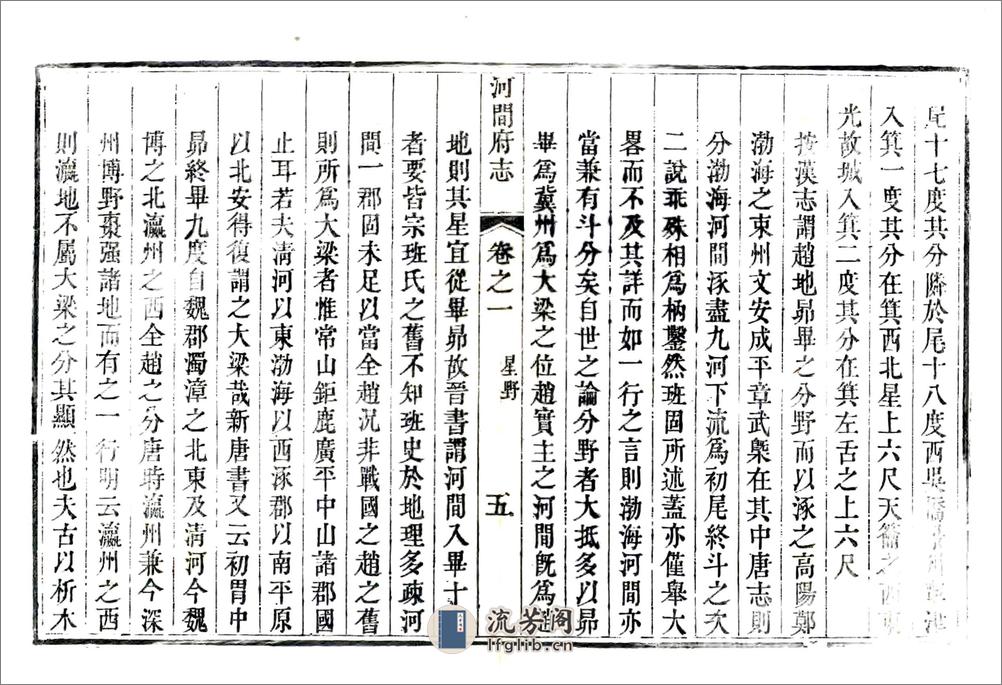 尾十七度其分隊於尾十八度西吳橋
入箕一度其分在箕西北星上六尺天籥之西
光故城入箕二度其分在箕左舌之上六尺
按漢志謂趙地昴畢之分野而以涿之高陽鄚
渤海之東州文安成平章武槩在其中唐志則
分渤海河間涿盡九河下流為初尾終斗之次
二說乖殊相為枘鑿然班固所述蓋亦僅舉大
畧而不及其詳而如一行之言則渤海河間亦
當兼有斗分矣自世之論分野者大抵多以昴
畢為冀州為大梁之位趙實主之河間旣為趙
河間府志 卷之一 星野 五
地則其星宜從畢昴故晉書謂河間入畢十
者要皆宗班氏之舊不知班史於地理多疎河
間一郡固未足以當全趙況非戰國之趙之舊
則所為大梁者惟常山鉅鹿廣平中山諸郡國
止耳若夫清河以東渤海以西涿郡以南平原
以北安得復謂之大梁哉新唐書又云初胃中
昴終畢九度自魏郡濁漳之北東及清河今魏
博之北瀛州之西全趙之分唐時瀛州兼今深
州博野棗强諸地而有之一行明云瀛州之西
則瀛地不屬大梁之分其顯然也夫古以析木
流芳阁
lfglib.cn